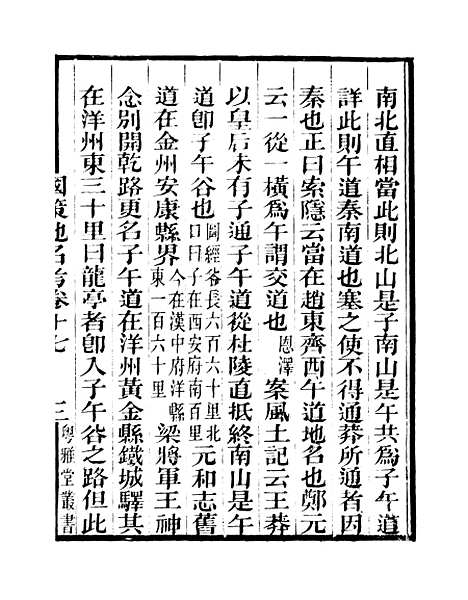 南北直相當此則北山是子南山是午共為子午道
詳此則午道秦南道也塞之使不得通莽所通者因
秦也正曰索隱云當在趙東齊西午道地名也鄭元
云一從一橫為午謂交道也恩澤案風土記云王莽
以皇后未有子通子午道從杜陵直抵終南山是午
道卽子午谷也圖經谷長六百六十里北口曰子在西安府南百里元和志舊
道在金州安康縣界今在漢中府洋縣東一百六十里梁將軍王神
念別開乾路更名子午道在洋州黃金縣鐵城驛其
在洋州東三十里曰龍亭者卽入子午谷之路但此
國策地名考卷十七 三 粵雅堂叢書